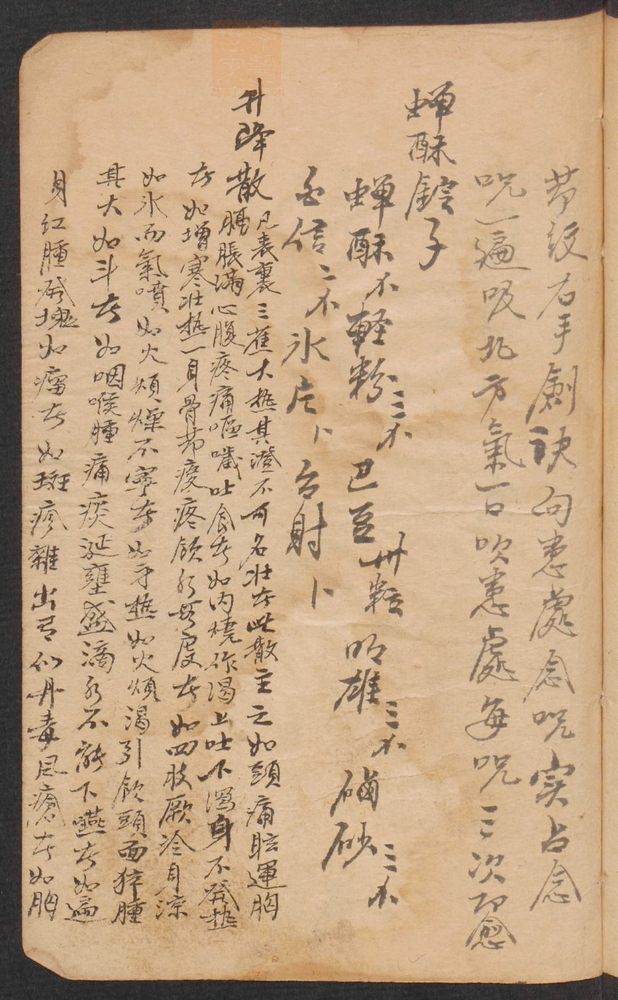 節紋右手劍訣向患處念咒実占念
咒一遍吸北方氣一口吹患處每咒三次即愈
蟬酥錠子
蟬酥 軽粉三 巴豆卅粒 明雄三 硇砂三
信二 氷片卜 台射卜
升降散 凡表裏三蕉大熱其澄不可名壯者此散主之如頭痛眩運胸
膈脹滿心腹疼痛嘔噦吐食者如内燒作渴上吐下瀉身不發熱
者如增寒壯熱一身骨節痠疼飲水無度者如四肢厥冷身涼
如氷而氣噴如火煩燥不寧者如身熱如火煩渴引飲頭面猝腫
其大如斗者如咽喉腫痛痰涎壅盛滴水不能下嚥者如遍
身紅腫發塊如瘤者如斑疹雜出有似丹毒風瘡者如胸